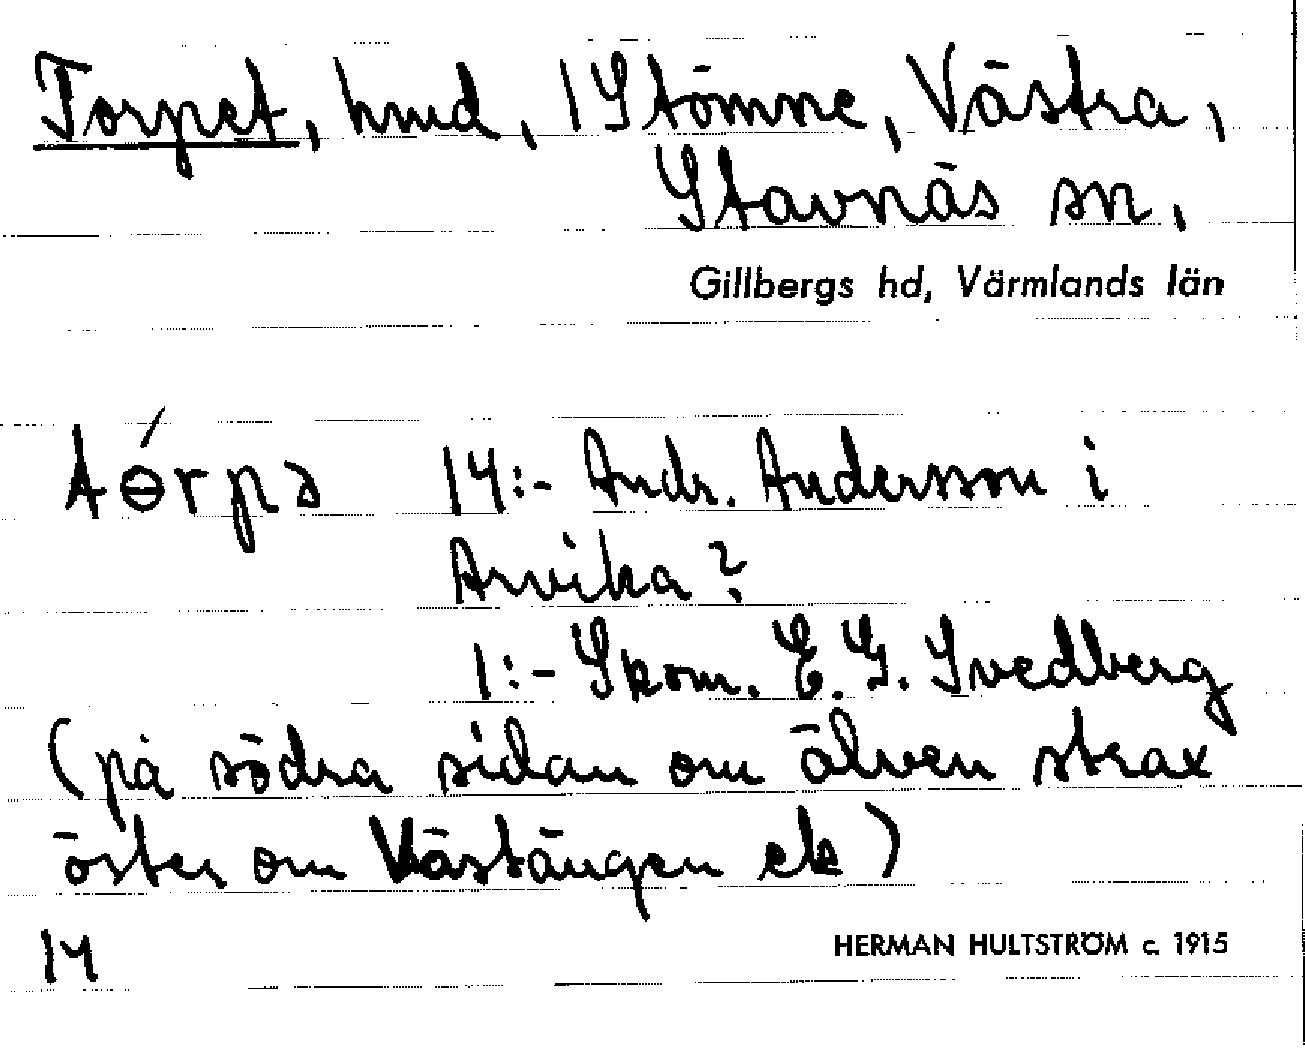 Torpet, hmd, 1 Stömne, Västra,
Stavnäs sn.
Gillbergs hd, Värmlands län
tɵ́rpə 14:- Andr. Andersson i
Arvika?
1:- Skom. E. G. Svedberg
(på södra sidan om älven strax
öster om Västängen ek)
14
HERMAN HULTSTRÖM c. 1915